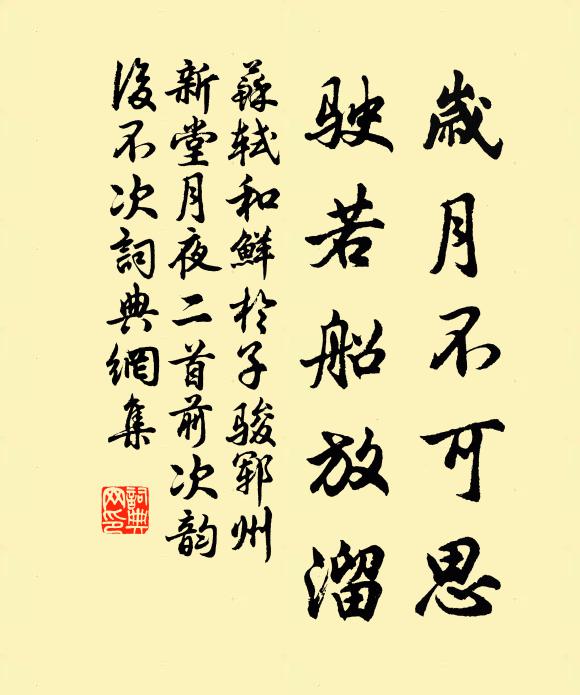 歲月不可思
駛若船放溜
蘇軾和鮮於子駿鄆州
新堂月夜二首前次韵
後不次詞典網集
詞典
网印